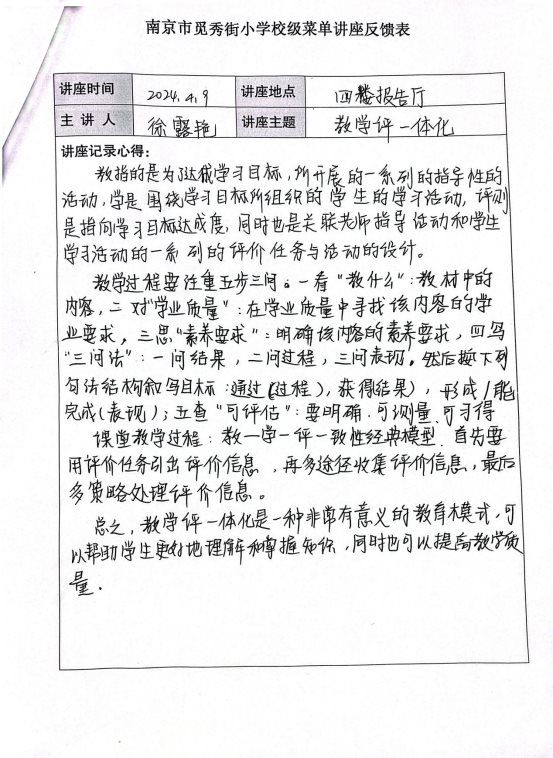 南京市觅秀街小学校级菜单讲座反馈表
讲座时间 2024.4.9 讲座地点 四楼报告厅
主讲人 徐露艳 讲座主题 教学评一体化
讲座记录心得：
教指的是为了达成学习目标，所开展的一系列的指导性的
活动，学是围绕学习目标所组织的学生的学习活动，评则
是指向学习目标达成度，同时也是关联老师指导活动和学生
学习活动的一系列的评价任务与活动的设计。
教学过程要注重五步三问。一看“教什么”：教材中的
内容，二对“学业质量”：在学业质量中寻找该内容的学
业要求，三思“素养要求”：明确该内容的素养要求，四写
“三问法”：一问结果，二问过程，三问表现，然后按下列
句法结构叙写目标：通过（过程），获得（结果），形成/能
完成（表现）；五查“可评估”：要明确、可测量、可习得
课堂教学过程：教一学一评一致性经典模型，首先要
用评价任务引出评价信息，再多途径收集评价信息，最后
多策略处理评价信息。
总之，教学评一体化是一种非常有意义的教育模式，可
以帮助学生更好地理解和掌握知识，同时也可以提高教学质
量.